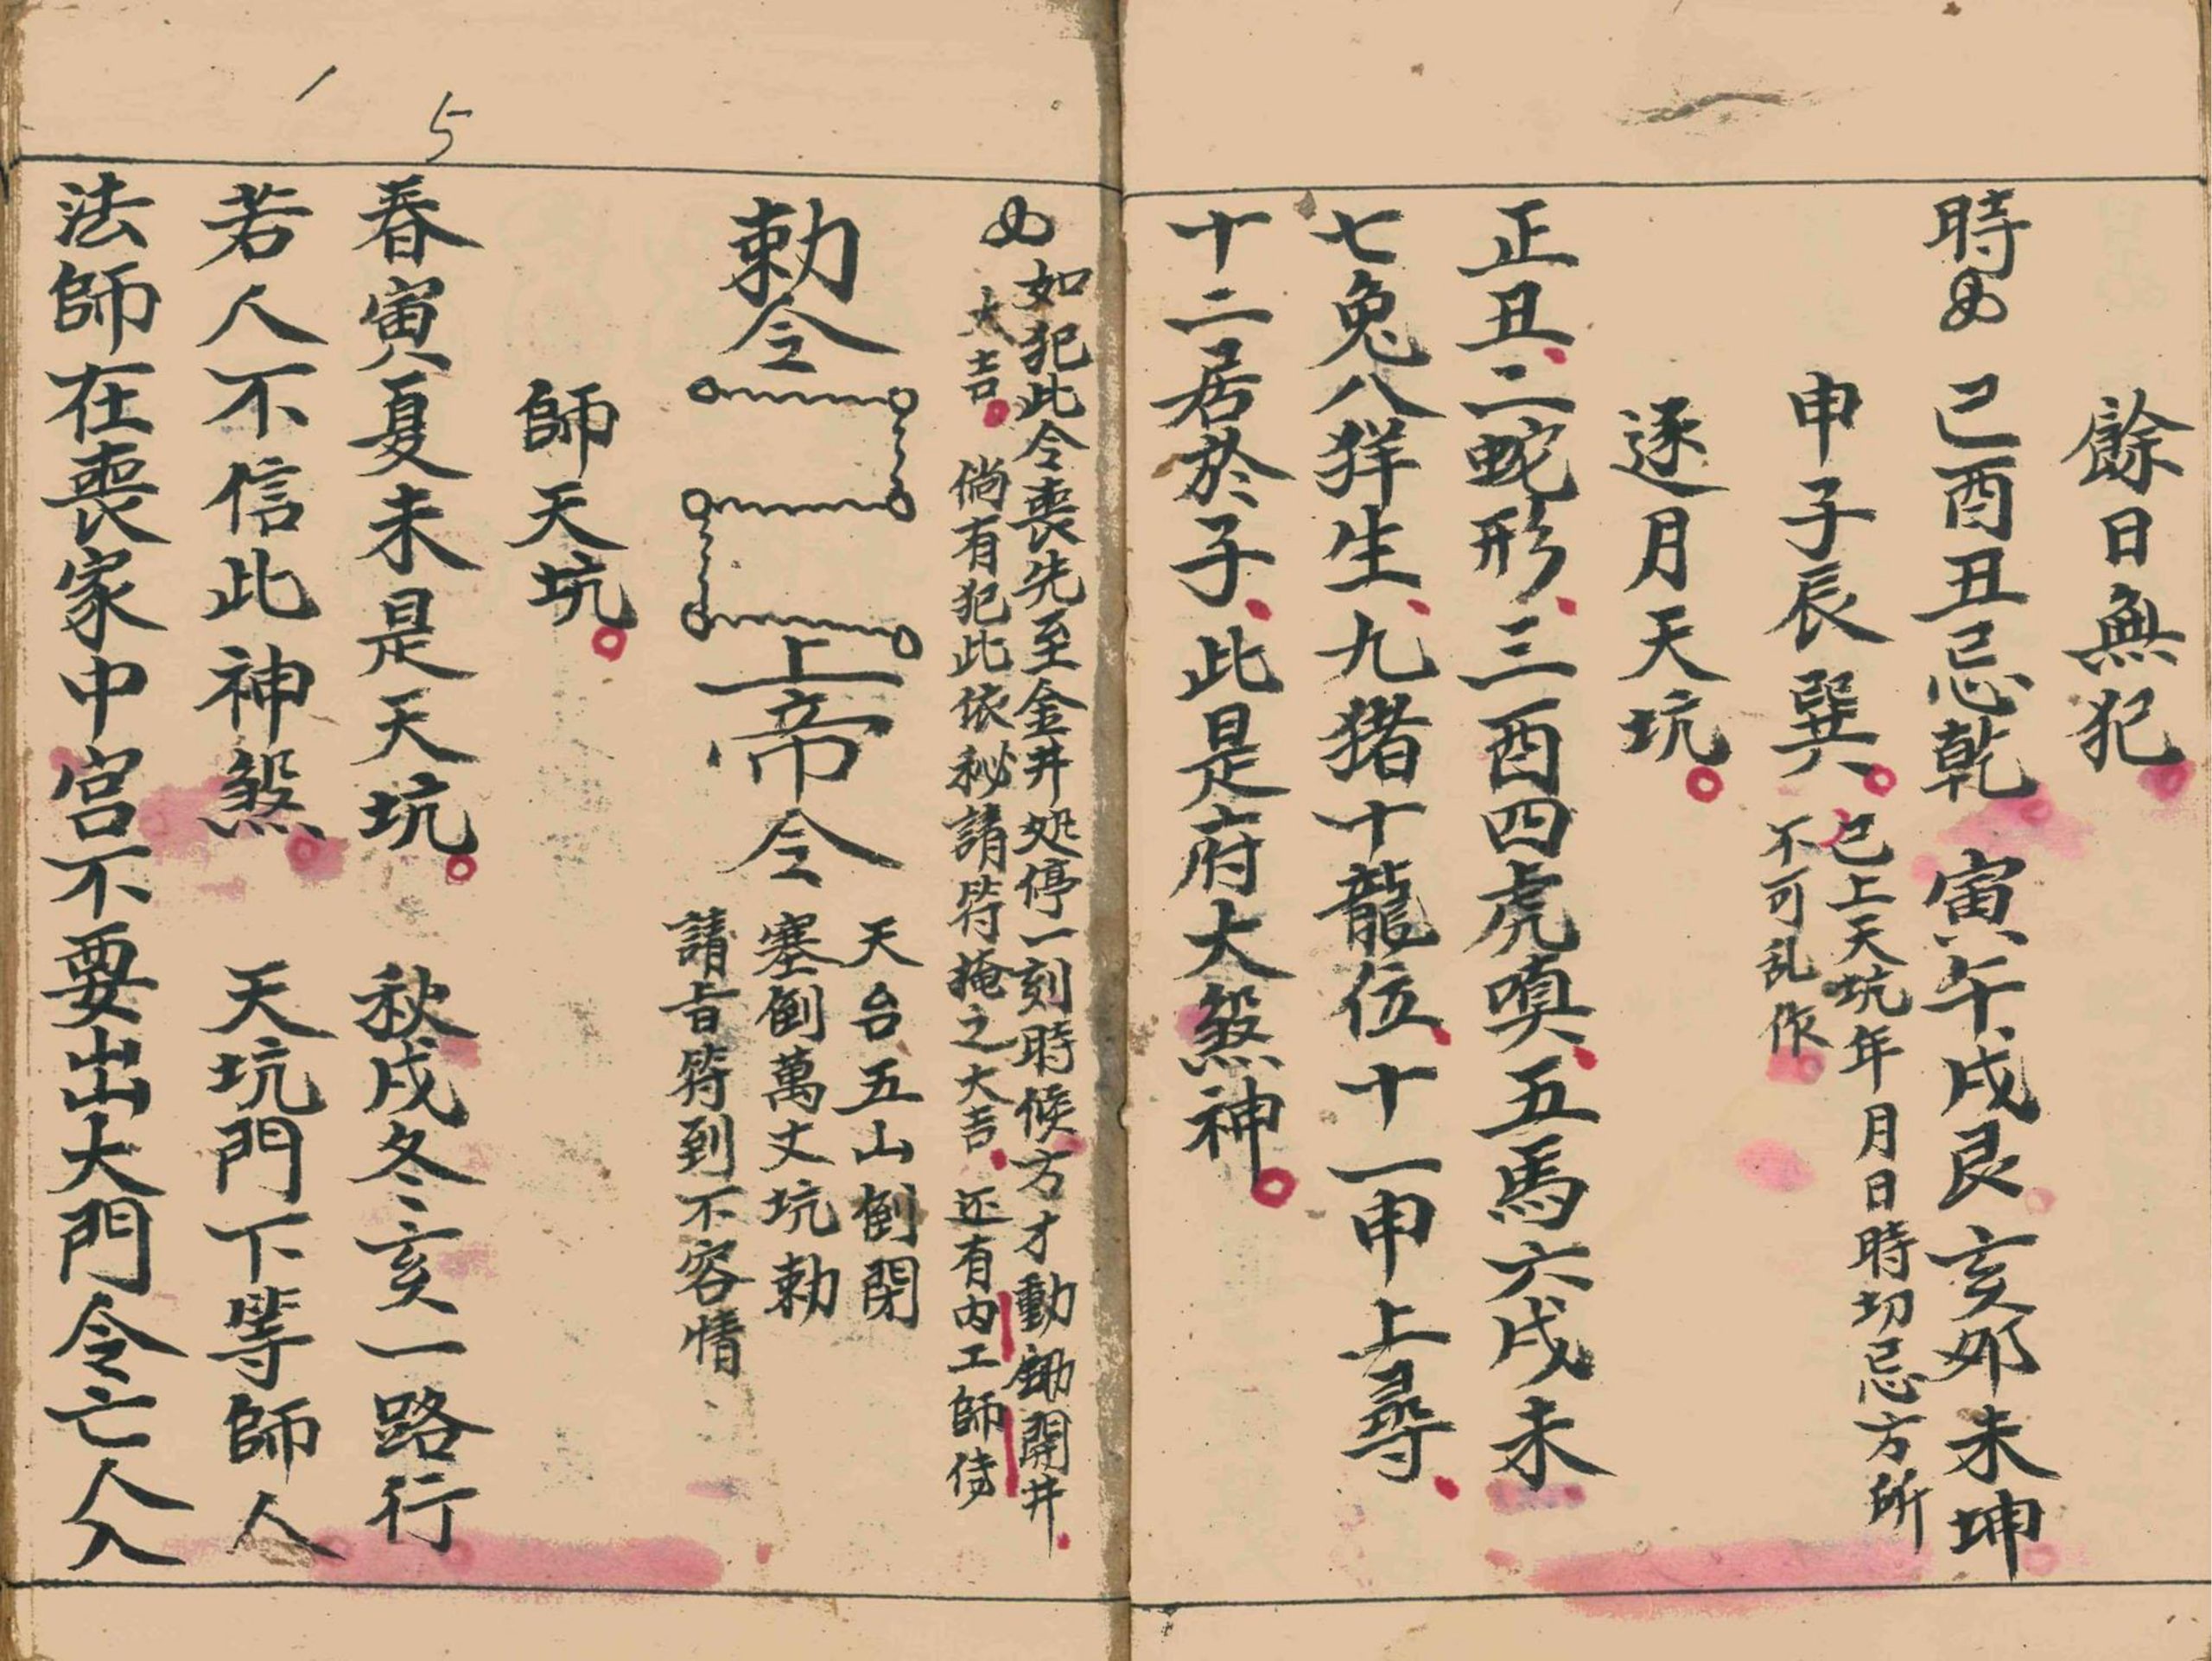 餘日無犯
時 巳酉丑忌乾 寅午戌艮 亥卯未坤
申子辰巽
已上天坑年月日時切忌方所
不可乱作
逐月天坑
正丑二蛇形三酉四虎嗔五馬六戌未
七兔八羊生九猪十龍位十一申上尋
十二居於子此是府大煞神
如犯此令喪先至金井処停一刻時候方才動鋤開井
大吉 倘有犯此依秘請符掩之大吉 还有內工師侍
勅令
上帝令
天台五山倒閉
塞倒萬丈坑勅
請旨符到不容情
師天坑
春寅夏未是天坑 秋戌冬亥一路行
若人不信此神煞 天坑門下等師人
法師在喪家中宮不要出大門令亡人入
5